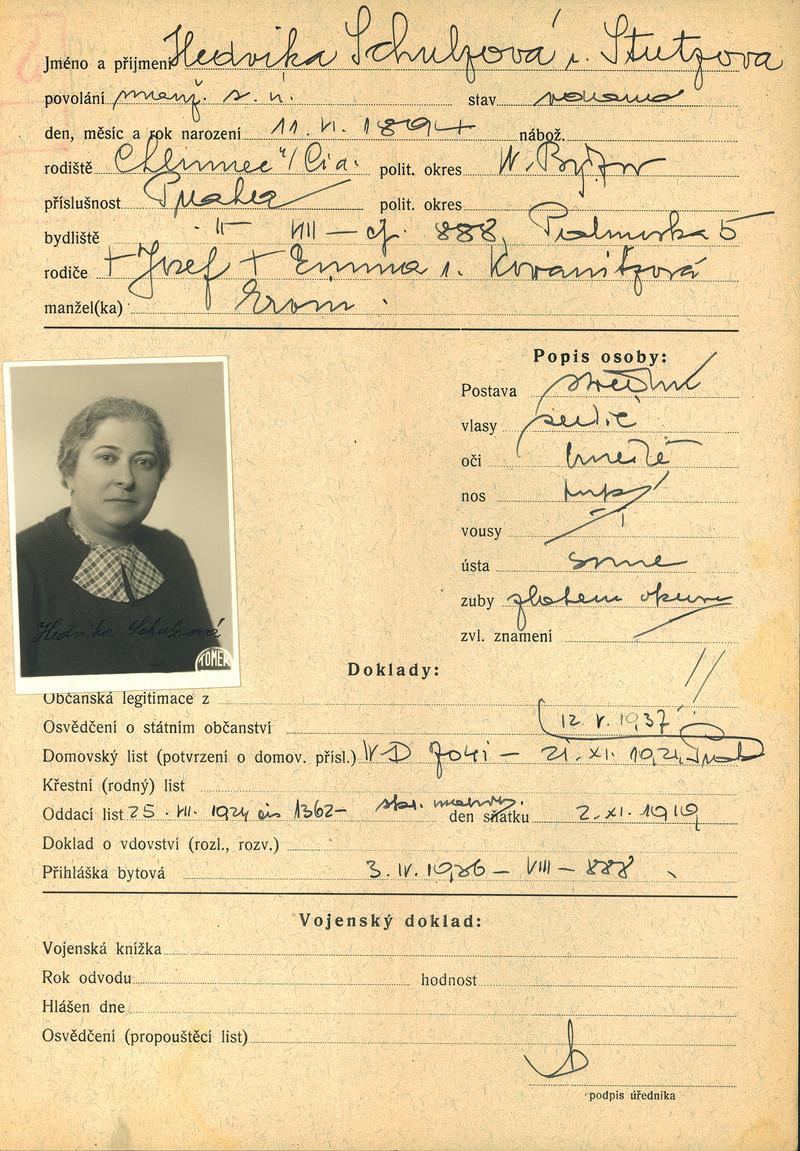 Jméno a příjmení Hedvika Schulzová r. Stutzova
povolání manž. s. ú. stav
den, měsíc a rok narození 11. VI. 1894 nábož.
rodiště Chlumec n/Cid. polit. okres N. Bydžov
příslušnost Praha polit. okres
bydliště -"- VIII - čp. 888, 5
rodiče + Josef + Emma r. Kovanitzová
manžel(ka) Ervin.
Popis osoby:
Postava střední
vlasy
oči hnědé
nos
vousy
ústa
zuby zlatem
zvl. znamení
Hedvika Schulzová
TOMEK
Doklady:
Občanská legitimace z
Osvědčení o státním občanství 12. V. 1937
Domovský list (potvrzení o domov. přísl.) IV D 7041 - 21. XI. 1924
Křestní (rodný) list
Oddací list 25. VII. 1924 čís 1362- den sňatku 2. XI. 1919
Doklad o vdovství (rozl., rozv.)
Přihláška bytová 3. IV. 1936 - VIII - 888
Vojenský doklad:
Vojenská knížka
Rok odvodu hodnost
Hlášen dne
Osvědčení (propouštěcí list)
podpis úředníka